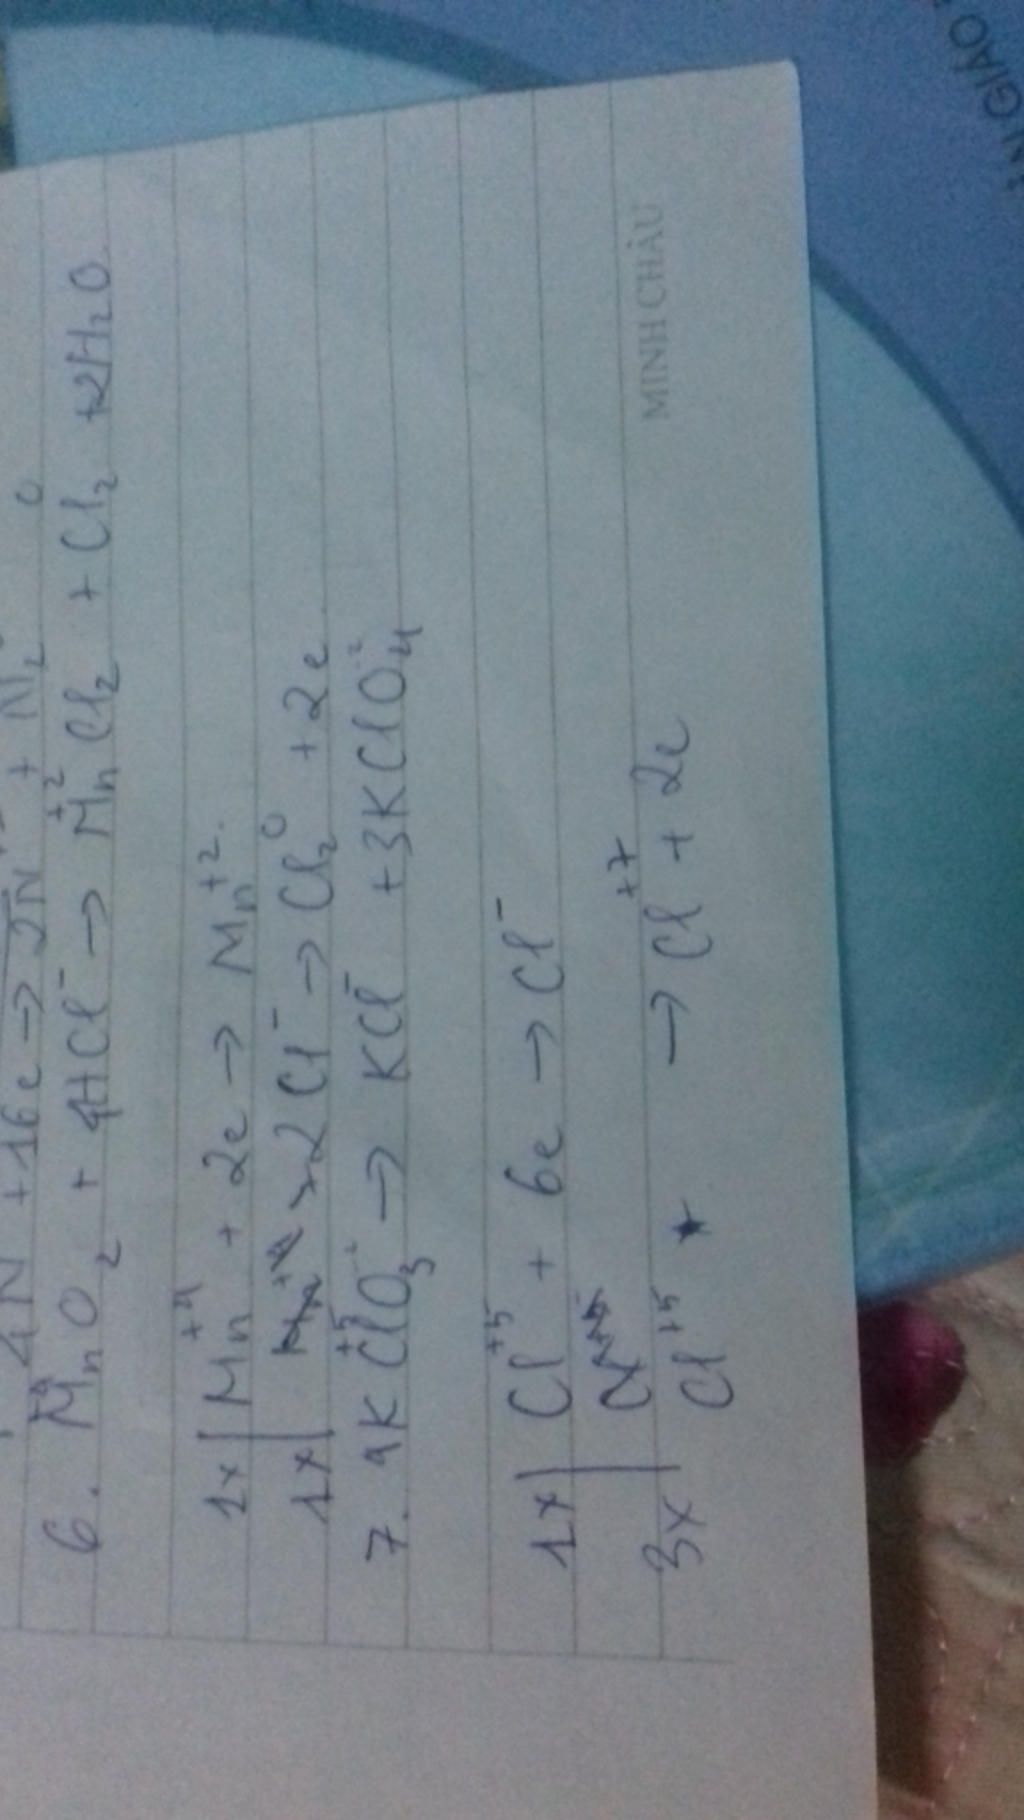 4N + 16e → 2N + N₂ 0
6. Mn⁺⁴O₂ + 4HCl⁻ → Mn⁺²Cl₂ + Cl₂ + 2H₂O
1x | Mn⁺⁴ + 2e → Mn⁺².
1x | 2Cl⁻ → Cl₂⁰ + 2e
7. 4KCl⁺⁵O₃⁻² → KCl⁻ + 3KClO₄⁻²
1x | Cl⁺⁵ + 6e → Cl⁻
3x | Cl⁺⁵ → Cl⁺⁷ + 2e
MINH CHÂU
ÁN GIÁO